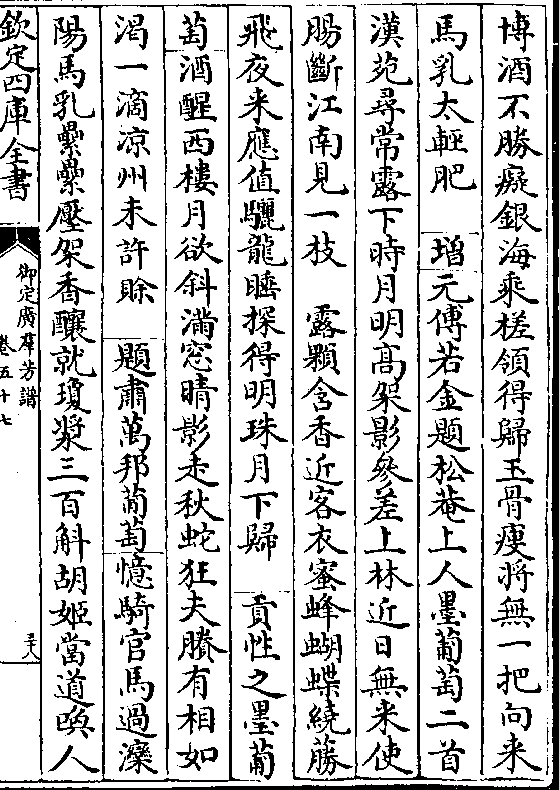 博酒不勝癡銀海乘槎領得歸玉骨瘦將無一把向来
馬乳太輕肥　増元傅若金題松菴上人墨葡萄二首
漢苑尋常露下時月明髙架影參差上林近日無来使
腸斷江南見一枝　露顆含香近客衣蜜蜂蝴蝶繞藤
飛夜来應值驪龍睡探得明珠月下歸　貢性之墨葡
萄酒醒西樓月欲斜滿窓晴影走秋蛇狂夫賸有相如
渇一滴凉州未許賒　題肅萬邦葡萄憶騎官馬過灤
陽馬乳纍纍壓架香釀就瓊漿三百斛胡姬當道喚人
欽定四庫全書
御定廣羣芳譜
卷五十七
三八